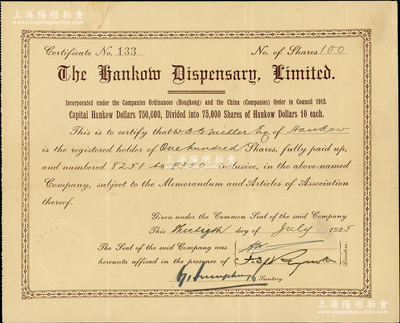 上海阳明拍卖
www.sh-yangming.com
Certificate No. 133
No. of Shares 100
The Hankow Dispensary, Limited.
Incorporated under the Companies Ordinances (Hongkong) and the China (Companies) Order in Council 1915.
Capital Hankow Dollars 750,000, Divided into 75,000 Shares of Hankow Dollars 10 each.
This is to certify that Miller Esq of Hankow
is the registered holder of One hundred Shares, fully paid up,
and numbered 8251 to inclusive, in the above-named
Company, subject to the Memorandum and Articles of Association
thereof.
Given under the Common Seal of the said Company
This day of July 1925
The Seal of the said Company was
hereunto affixed in the presence of
Directors.
Secretary
上海阳明拍卖